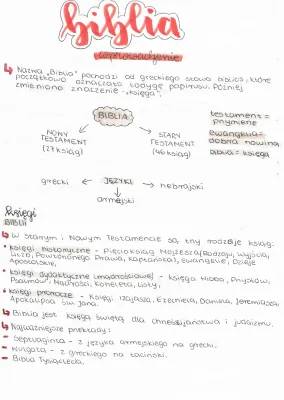 biblia
wprowadzenie
↳ Nazwa „Biblia" pochodzi od greckiego słowa biblos, które
początkowo oznaczało łodygę papirusu. Później
zmieniono znaczenie „księga".
BIBLIA
NOWY TESTAMENT (27 ksiąg)
STARY TESTAMENT (46 ksiąg)
testament = przymierze
ewangelia = dobra nowina
biblia = księga
grecki ← JĘZYKI → hebrajski
↓
armejski
księgi
BIBLII
↳ w Starym i Nowym Testamencie są trzy rodzaje ksiąg:
• księgi historyczne - Pięcioksiąg Mojżesza (Rodzaju, Wyjścia,
Liczb, Powtórzonego Prawa, Kapłańska), Ewangelie, Dzieje
Apostolskie,
• księgi dydaktyczne (mądrościowe) - Księga Hioba, Przysłów,
Psalmów, Mądrości, Koheleta, Listy,
• księgi prorocze - Księgi: Izajasza, Ezechiela, Daniela, Jeremiasza,
Apokalipsa św. Jana.
↳ Biblia jest księgą świętą dla chrześcijaństwa i judaizmu.
↳ Najważniejsze przekłady:
- Septuaginta - z języka armejskiego na grecki.
- Wulgata - z greckiego na łaciński.
- Biblia Tysiąclecia.